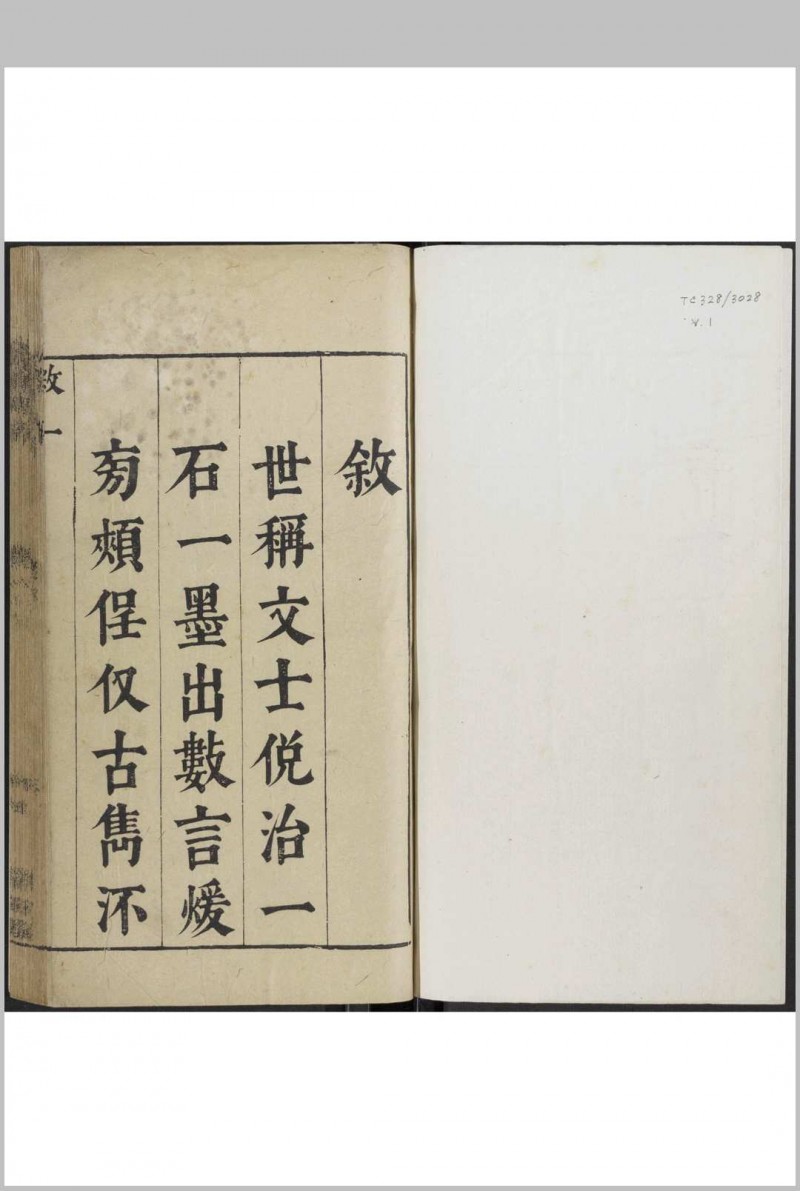 TC328/3028
v.1
敘
世稱文士倪治一
石一墨出數言煖
㫄頗侱仅古雋沗
敘 一